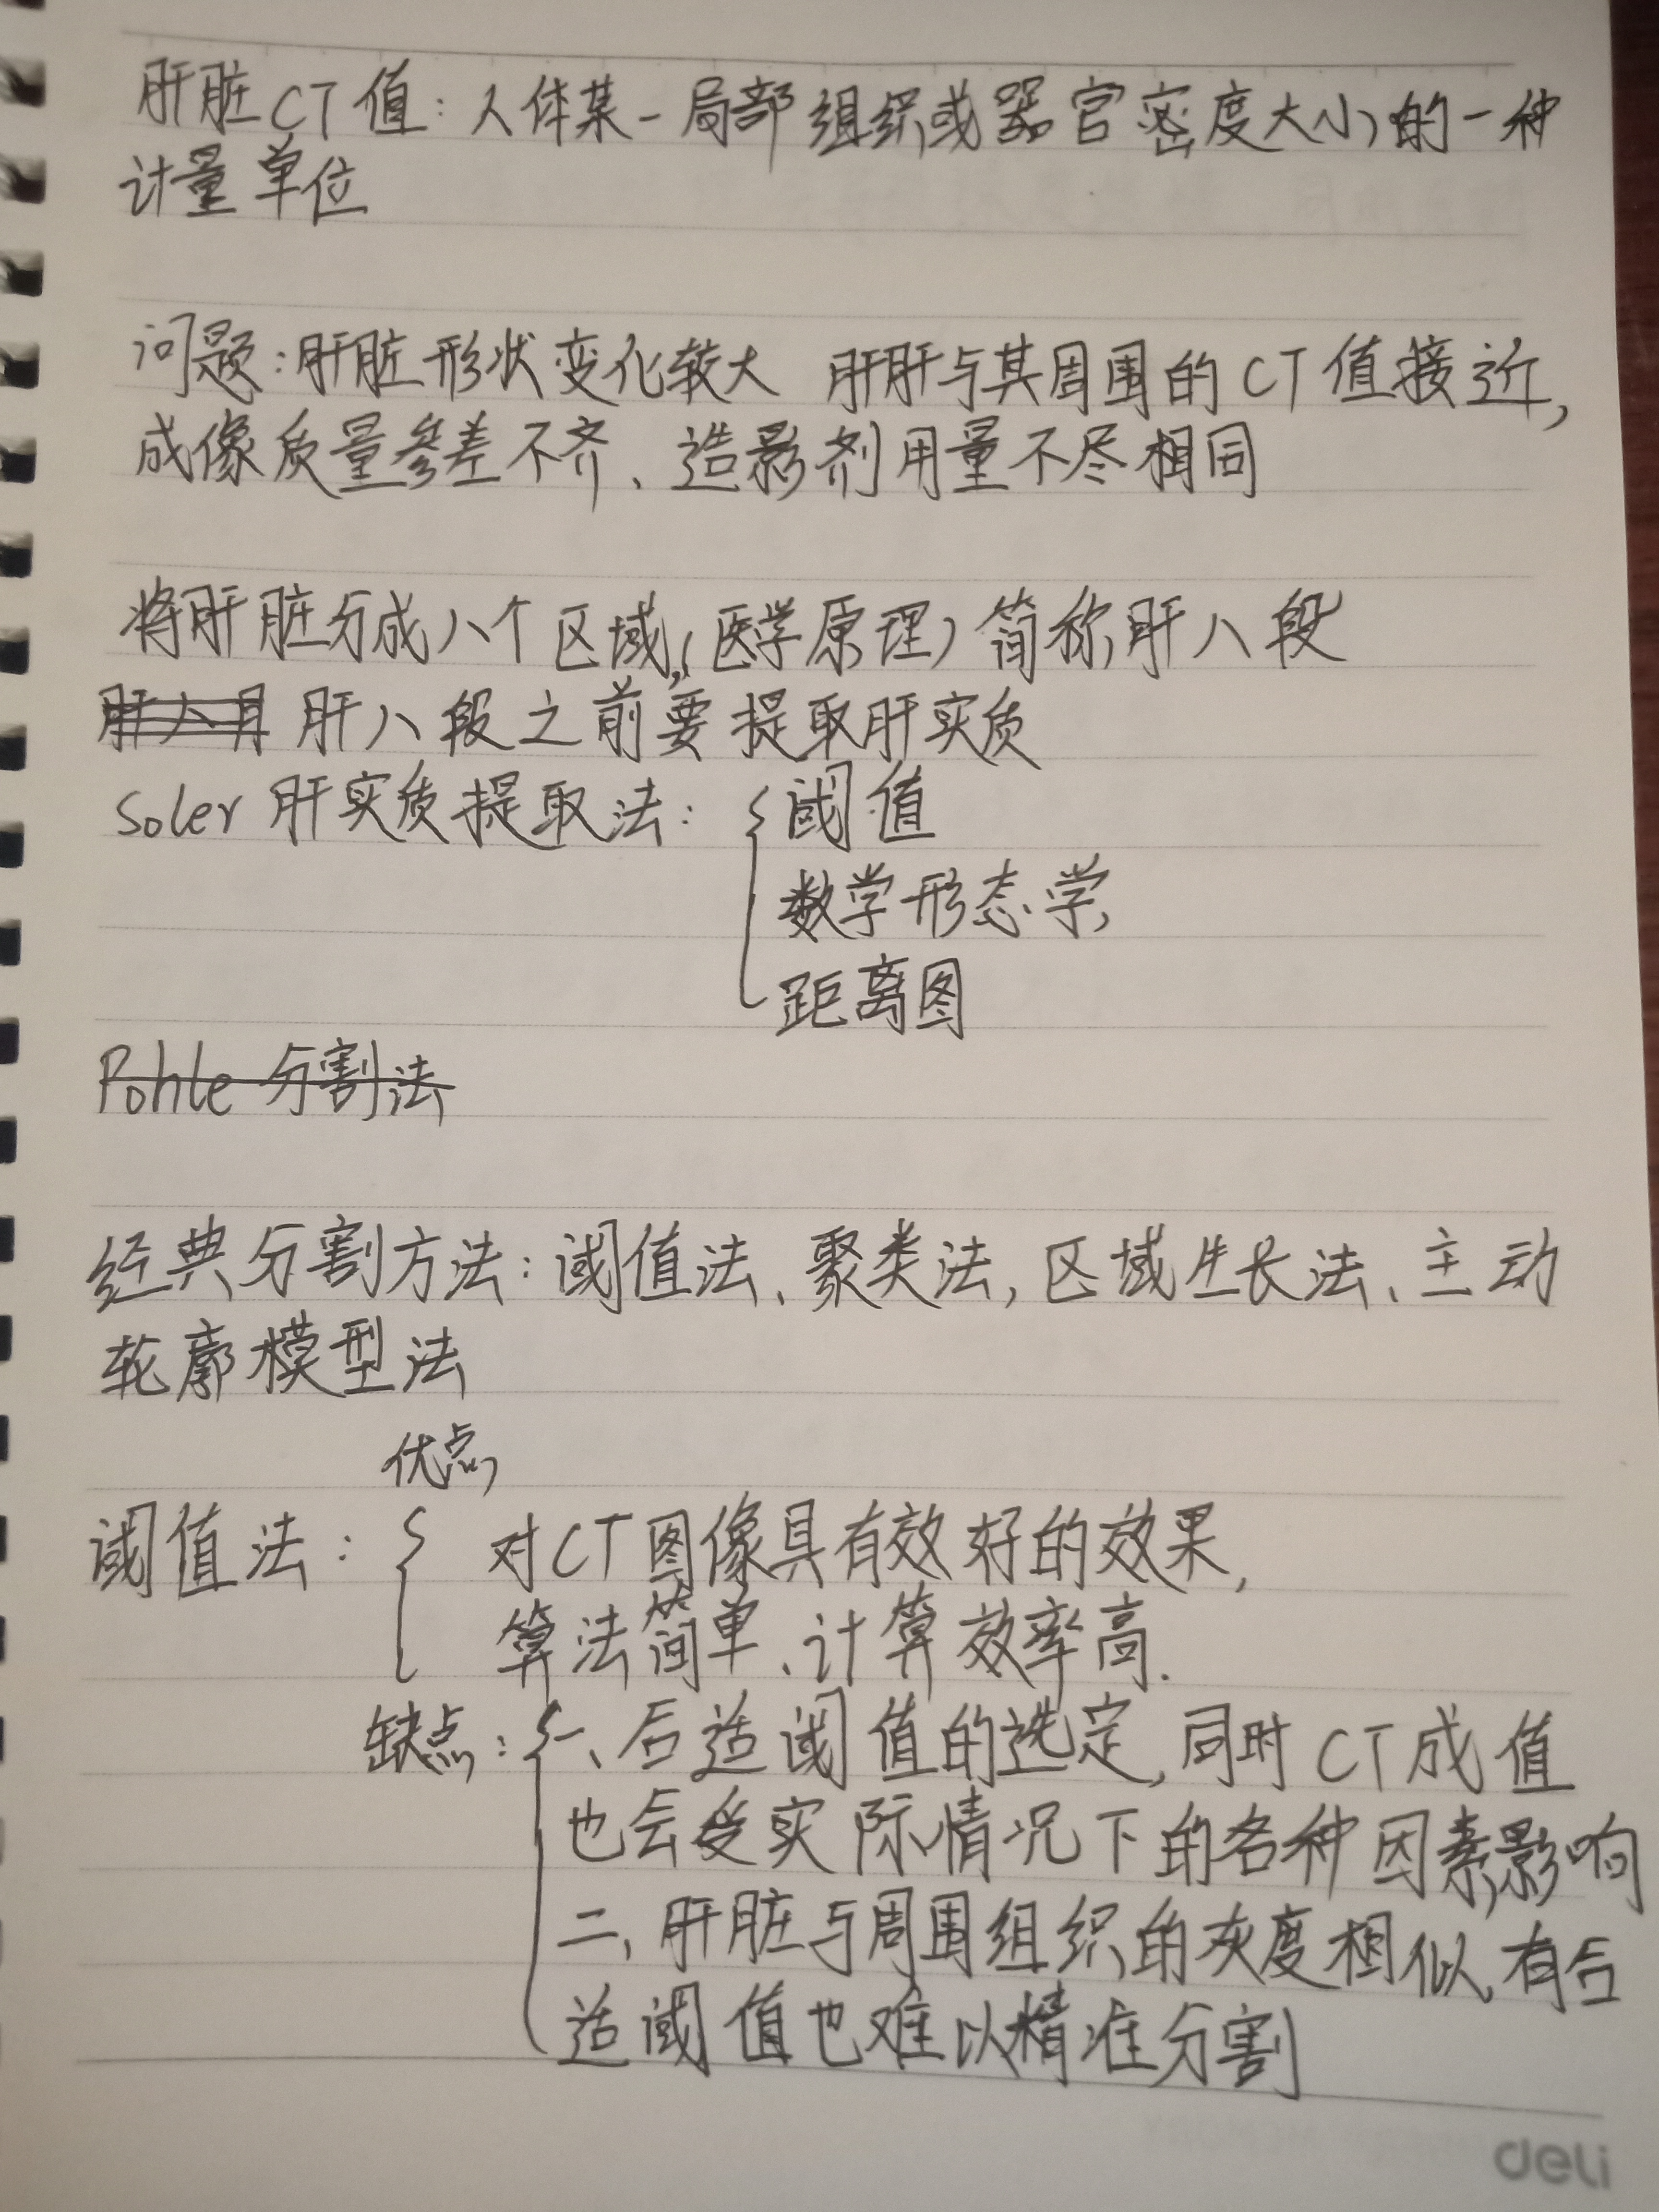 肝脏CT值：人体某一局部组织或器官密度大小的一种
计量单位
问题：肝脏形状变化较大 肝肝与其周围的CT值接近，
成像质量参差不齐、造影剂用量不尽相同
将肝脏分成八个区域，(医学原理) 简称肝八段
肝八段之前要提取肝实质
Soler 肝实质提取法：阈值
数学形态学
距离图
Pohle 分割法
经典分割方法：阈值法、聚类法，区域生长法、主动
轮廓模型法
优点
阈值法：对CT图像具有效好的效果，
算法简单、计算效率高．
缺点：一、后适阈值的选定，同时CT成值
也会受实际情况下的各种因素影响
二、肝脏与周围组织的灰度相似，有合
适阈值也难以精准分割
deli